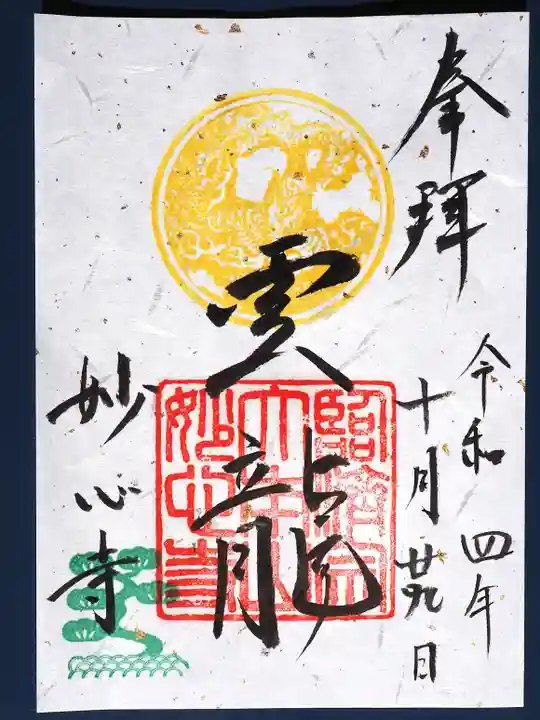 奉拝
令和四年
十月廿九日
雲龍
妙心寺
臨済宗
大本山
妙心寺